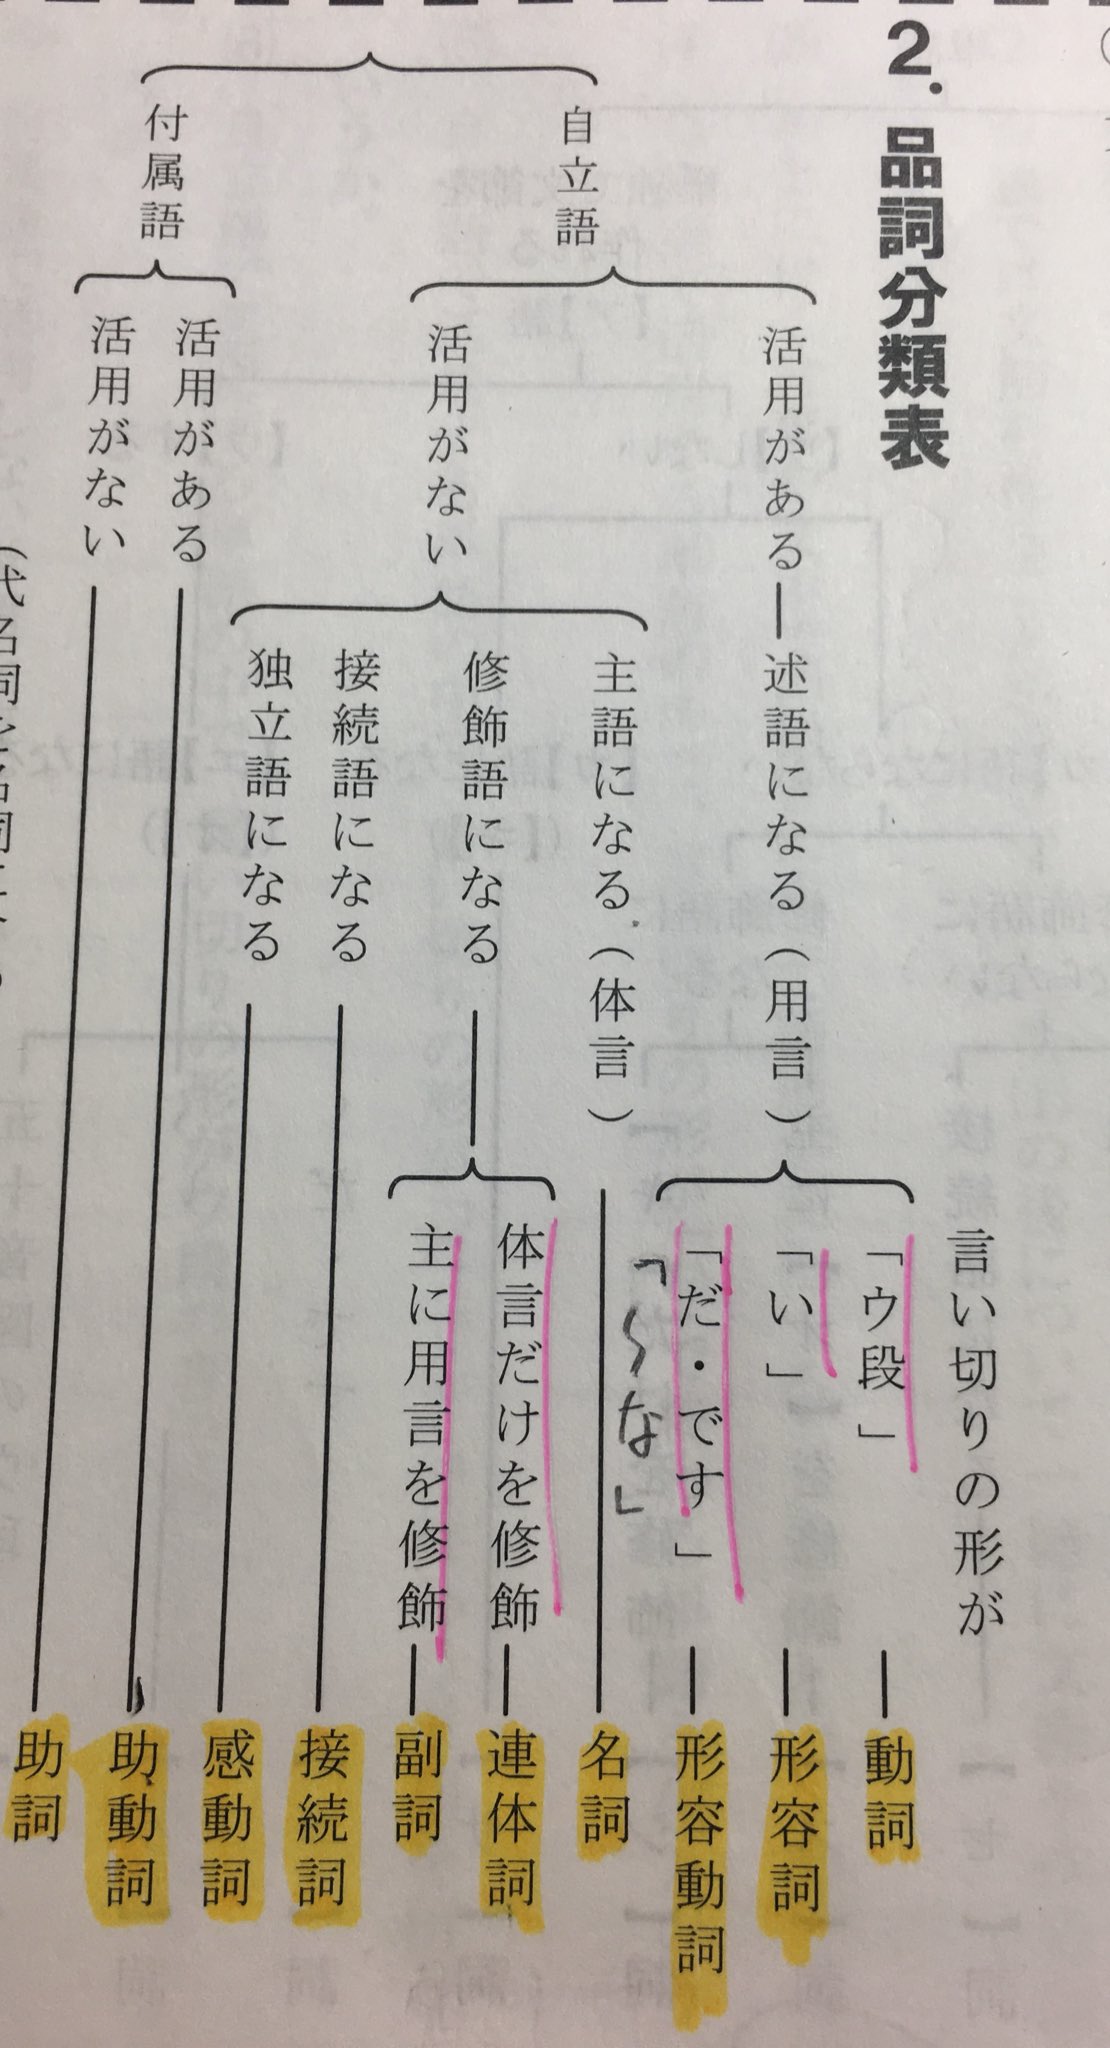 2. 品詞分類表
自立語
活用がある
述語になる(用言)
言い切りの形が
「ウ段」
動詞
「い」
形容詞
「だ・です」
「〜な」
形容動詞
活用がない
主語になる(体言)
名詞
修飾語になる
体言だけを修飾
連体詞
主に用言を修飾
副詞
接続語になる
接続詞
独立語になる
感動詞
付属語
活用がある
助動詞
活用がない
助詞